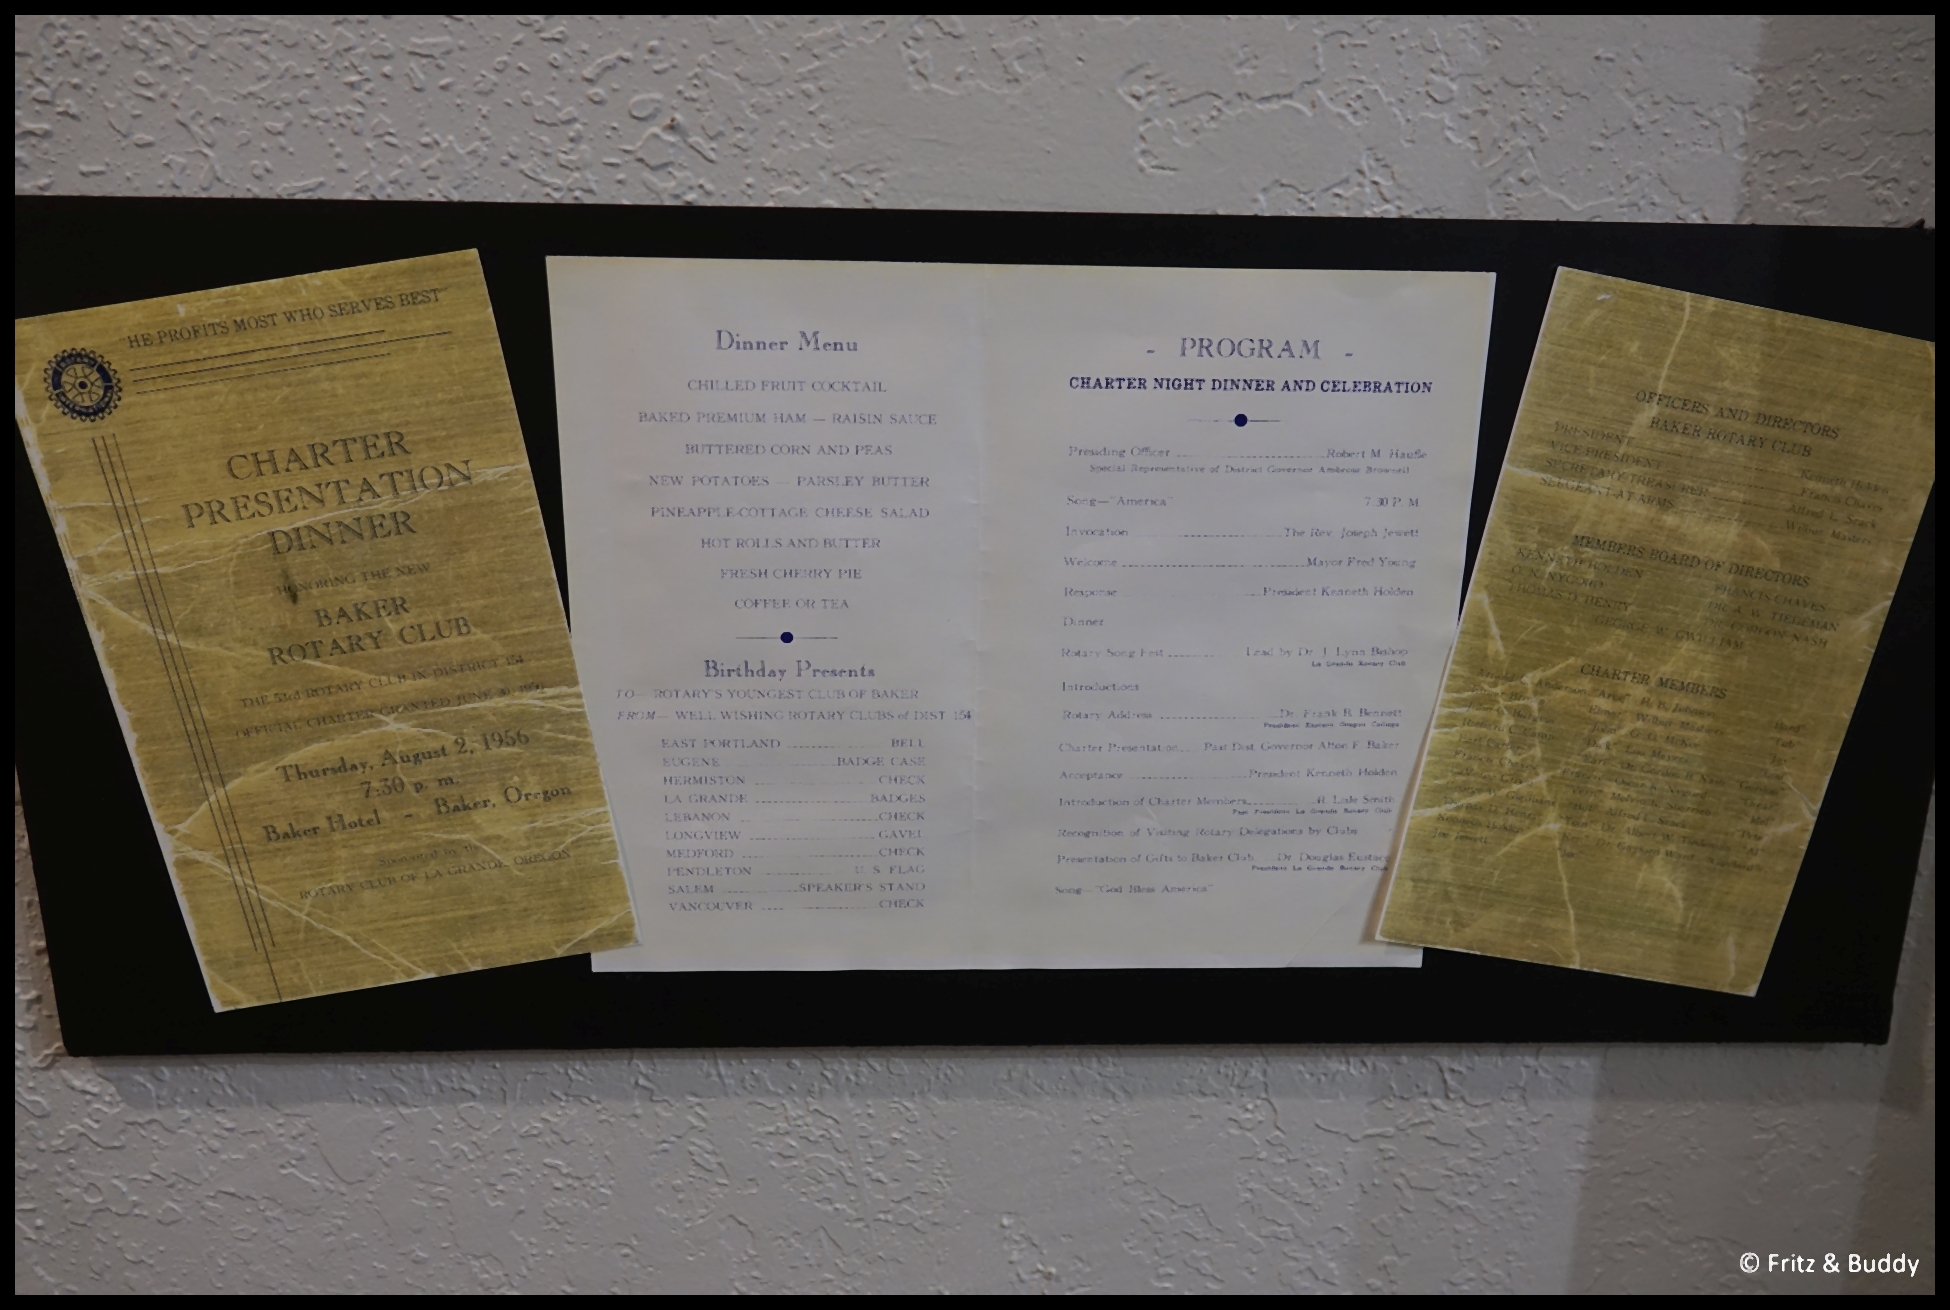 "HE PROFITS MOST WHO SERVES BEST"
CHARTER
PRESENTATION
DINNER
HONORING THE NEW
BAKER
ROTARY CLUB
THE 53rd ROTARY CLUB IN DISTRICT 154
OFFICIAL CHARTER GRANTED JUNE
Thursday, August 2, 1956
7:30 p. m.
Baker Hotel - Baker, Oregon
Sponsored by the
ROTARY CLUB OF LA GRANDE, OREGON
Dinner Menu
CHILLED FRUIT COCKTAIL
BAKED PREMIUM HAM — RAISIN SAUCE
BUTTERED CORN AND PEAS
NEW POTATOES — PARSLEY BUTTER
PINEAPPLE-COTTAGE CHEESE SALAD
HOT ROLLS AND BUTTER
FRESH CHERRY PIE
COFFEE OR TEA
Birthday Presents
TO— ROTARY'S YOUNGEST CLUB OF BAKER
FROM— WELL WISHING ROTARY CLUBS of DIST 154
EAST PORTLAND BELL
EUGENE BADGE CASE
HERMISTON CHECK
LA GRANDE BADGES
LEBANON CHECK
LONGVIEW GAVEL
MEDFORD CHECK
PENDLETON U. S. FLAG
SALEM SPEAKER'S STAND
VANCOUVER CHECK
- PROGRAM -
CHARTER NIGHT DINNER AND CELEBRATION
Presiding Officer Robert M.
Special Representative of District Governor Ambrose Brownell
Song—"America" 7:30 P. M.
Invocation The Rev. Joseph Jewett
Welcome Mayor Fred Young
Response President Kenneth Holden
Dinner
Rotary Song Fest Lead by Dr. J. Lynn Bishop
La Grande Rotary Club
Introductions
Rotary Address Dr. Frank B. Bennett
President Eastern Oregon College
Charter Presentation Past Dist. Governor Alton F. Baker
Acceptance President Kenneth Holden
Introduction of Charter Members R. Lisle Smith
Past President La Grande Rotary Club
Recognition of Visiting Rotary Delegations by Clubs
Presentation of Gifts to Baker Club Dr. Douglas Eustace
President La Grande Rotary Club
Song—"God Bless America"
OFFICERS AND DIRECTORS
BAKER ROTARY CLUB
PRESIDENT Kenneth Holden
VICE-PRESIDENT Francis Chaves
SECRETARY-TREASURER Alfred L. Stack
SERGEANT-AT-ARMS Wilbur Masters
MEMBERS BOARD OF DIRECTORS
KENNETH HOLDEN FRANCIS CHAVES
O. N. NYGORD DR. A. W. TIEDEMAN
THOMAS D. HENRY NASH
GEORGE W. GWILLIAM
CHARTER MEMBERS
Joe Jewett
© Fritz & Buddy